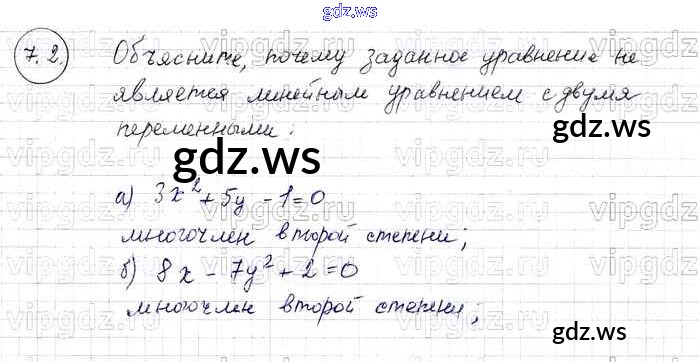 gdz.ws
7.2. Объясните, почему заданное уравнение не
является линейным уравнением с двумя
переменными:
gdz.ws
gdz.ws
а) 3x² + 5y - 1 = 0
многочлен второй степени;
б) 8x - 7y² + 2 = 0
многочлен второй степени;
gdz.ws
gdz.ws